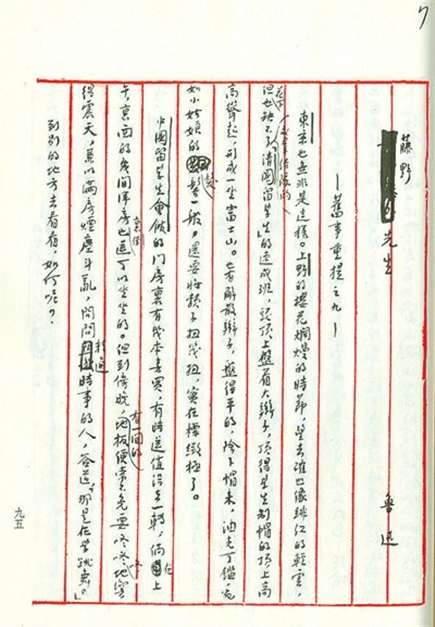 7
藤野先生
—舊事重提之九—
魯迅
東京也無非是這樣。上野的櫻花爛熳的時節,望去確也像緋紅的輕雲,
但花下也缺不了成羣結隊的清國留學生的速成班,頭頂上盤着大辮子,頂得學生制帽的頂上高
高聳起,形成一座富士山。也有解散辮子,盤得平的,除下帽來,油光可鑑,宛
如小姑娘的髮髻一般,還要將頸子扭幾扭,實在標緻極了。
中國留學生會館的門房裏有幾本書買,有時還值得去一轉,倘在上
午,裏面的幾間洋房也還可以坐坐的。但到傍晚,有一間的地板便常不免要咚咚地響
得震天,兼以滿房煙塵斗亂,問問精通時事的人,答道,「那是在學跳舞。」
到別的地方去看看,如何呢?
九五